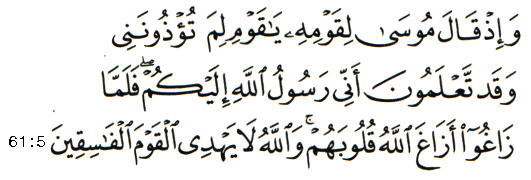 وَإِذْ قَالَ مُوسَىٰ لِقَوْمِهِۦ يَٰقَوْمِ لِمَ تُؤْذُونَنِى
وَقَد تَّعْلَمُونَ أَنِّى رَسُولُ ٱللَّهِ إِلَيْكُمْ ۖ فَلَمَّا
زَاغُوٓا۟ أَزَاغَ ٱللَّهُ قُلُوبَهُمْ ۚ وَٱللَّهُ لَا يَهْدِى ٱلْقَوْمَ ٱلْفَٰسِقِينَ 61:5